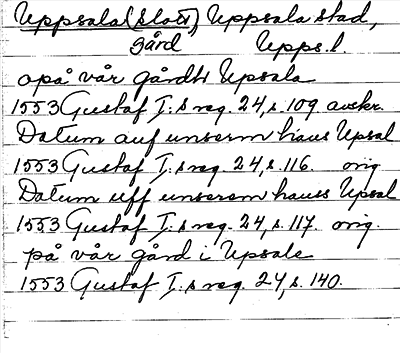 Uppsala (Slott), Uppsala stad,
gård Upps.l.
opå vår gårdh Upsala
1553 Gustaf I:s reg. 24, s. 109 avskr.
Datum auf unserm haus Upsal
1553 Gustaf I:s reg. 24, s. 116. orig
Datum uff unserem hauss Upsal
1553 Gustaf I:s reg. 24, s. 117. orig.
på vår gård i Upsale
1553 Gustaf I:s reg. 24, s. 140.